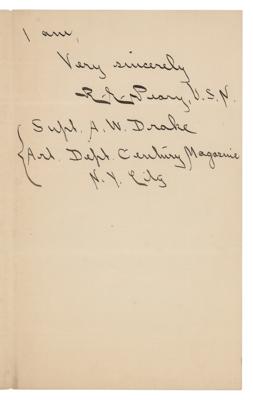 I am,
Very sincerely
R.E. Peary, U.S.N.
Supt. A.W. Drake
Art. Dept. Century Magazine
N.Y. City